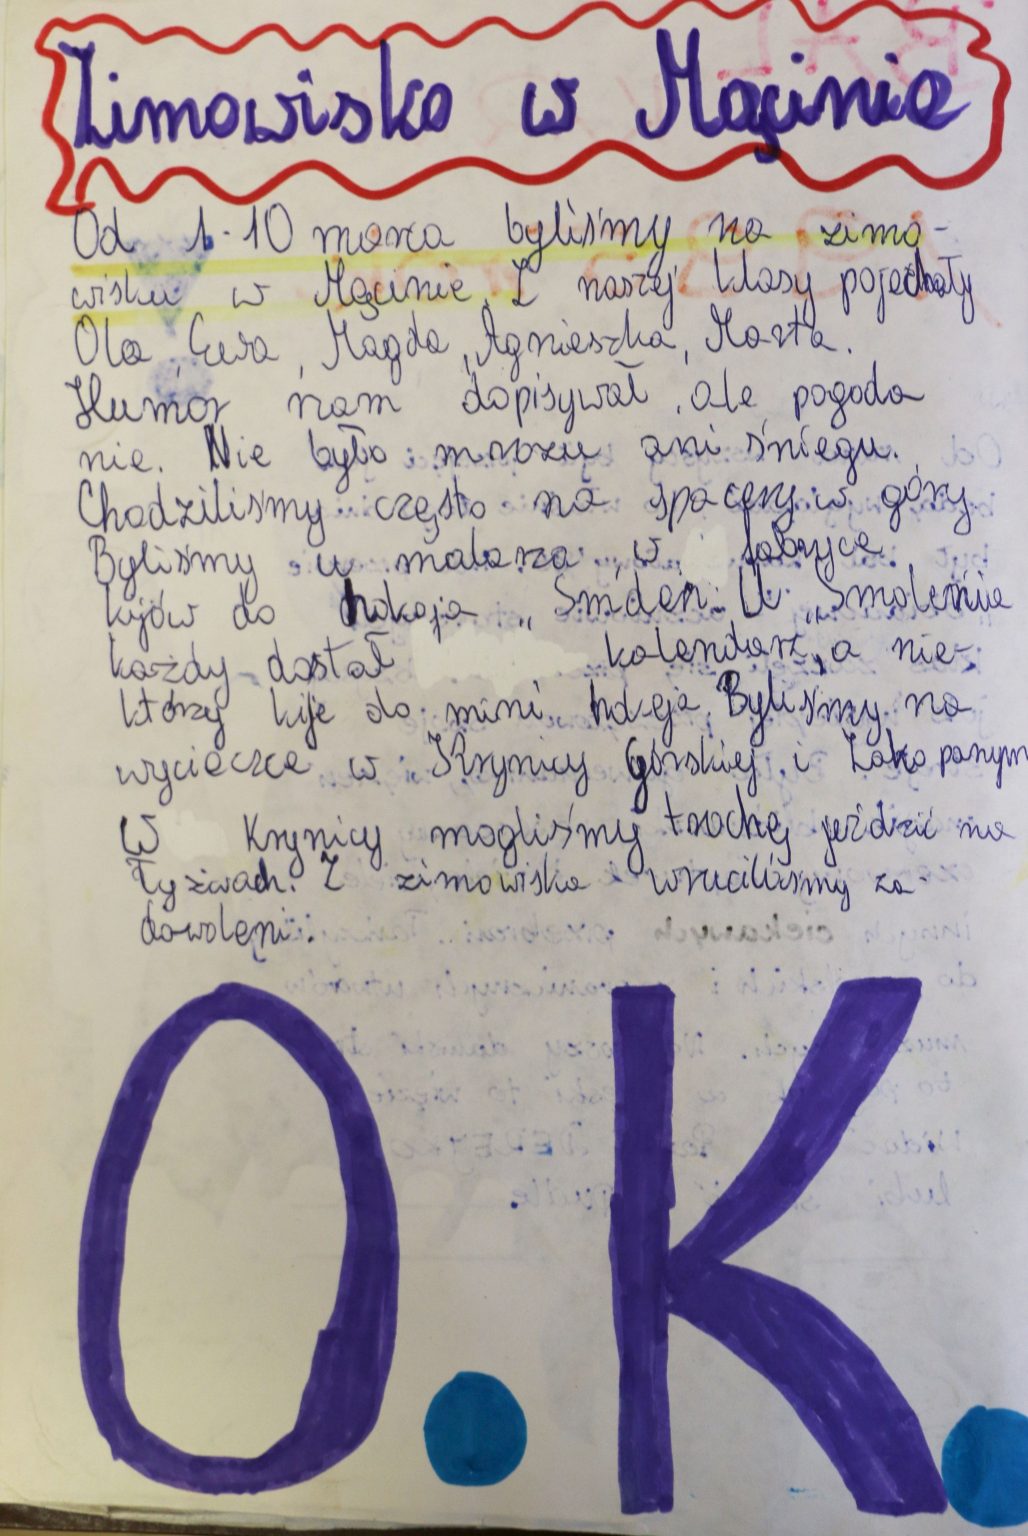 Zimowisko w Męcinie
Od 1-10 marca byliśmy na zimo-
wisku w Męcinie. Z naszej klasy pojechały
Ola, Ewa, Magda, Agnieszka, Marta.
Humor nam dopisywał, ale pogoda
nie. Nie było mrozu ani śniegu.
Chodziliśmy często na spacery w góry
Byliśmy u malarza, w fabryce
kijów do hokeja „Smoleń. U „Smolenia
każdy dostał kalendarz, a nie-
którzy kije do mini hokeja. Byliśmy na
wycieczce w Krynicy Górskiej i Zakopanym
W Krynicy mogliśmy trochę jeździć na
łyżwach. Z zimowiska wróciliśmy za-
dowoleni.
O.K.